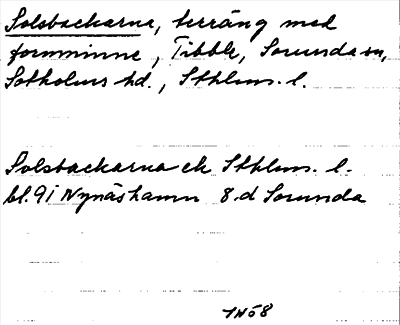 Solsbackarna, terräng med
fornminne, Tibble, Sorunda sn,
Sotholms hd., Sthlms. l.
Solsbackarna ek Sthlms. l.
bl. 91 Nynäshamn 8 d Sorunda